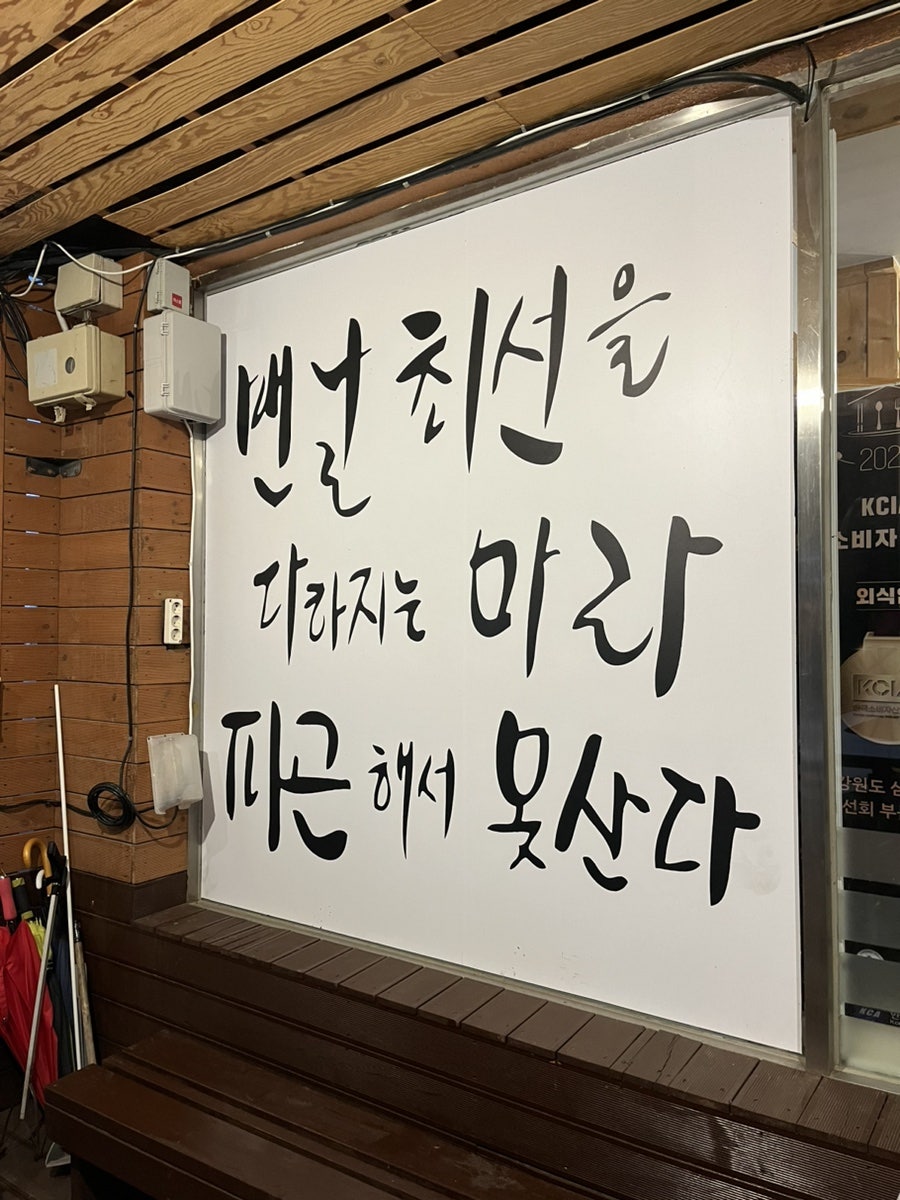 맨날 최선을
다하지는 마라
피곤해서 못산다
202
KCI
소비자
외식
KCI
강원도 삼
선회 부
KCA